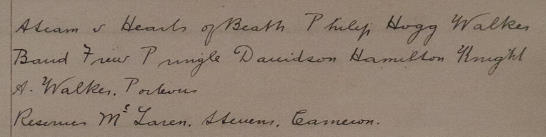 A team v Hearts of Beath Philip Hogg Walker
Baud Frew Pringle Davidson Hamilton Knight
A. Walker. Porteous
Reserves McLaren. Stevens. Cameron.